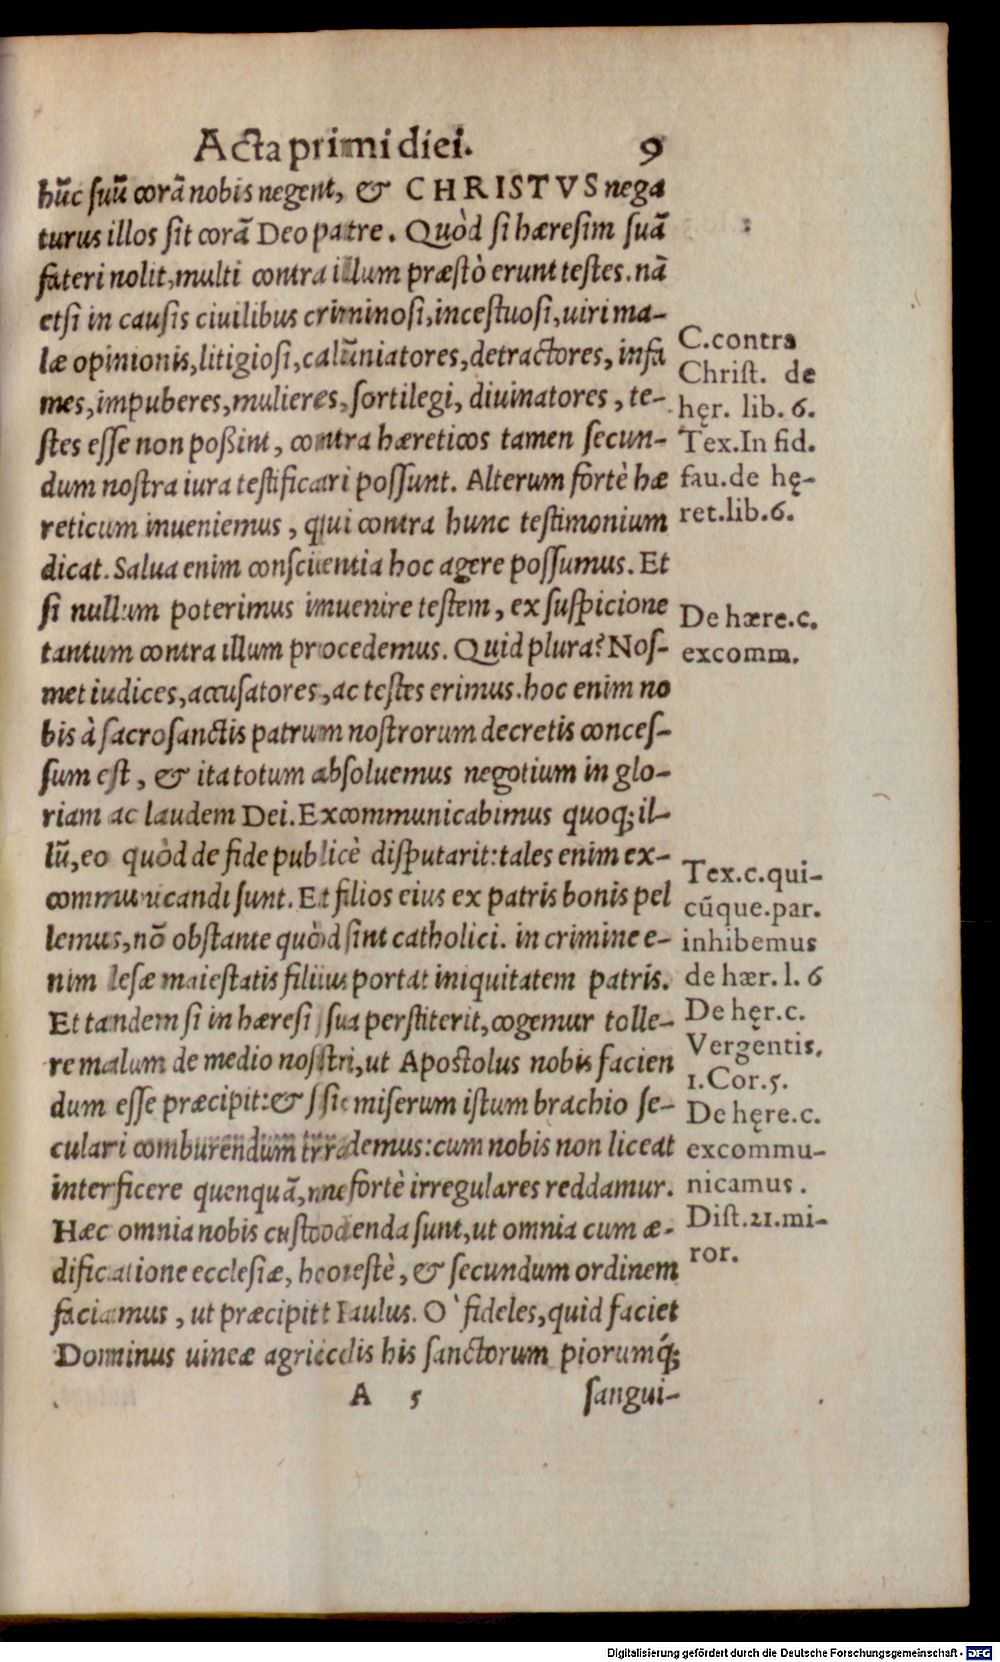 Acta primi diei. 9
hūc suū corā nobis negent, & CHRISTVS nega
turus illos sit corā Deo patre. Quòd si hæresim suā
fateri nolit, multi contra illum præstò erunt testes. nā
etsi in causis ciuilibus criminosi, incestuosi, uiri ma-
læ opinionis, litigiosi, calūniatores, detractores, infa
mes, impuberes, mulieres, sortilegi, diuinatores, te-
stes esse non poßint, contra hæreticos tamen secun-
dum nostra iura testificari possunt. Alterum fortè hæ
reticum inueniemus, qui contra hunc testimonium
dicat. Salua enim conscientia hoc agere possumus. Et
si nullum poterimus inuenire testem, ex suspicione
tantum contra illum procedemus. Quid plura? Nos-
met iudices, accusatores, ac testes erimus. hoc enim no
bis à sacrosanctis patrum nostrorum decretis conces-
sum est, & ita totum absoluemus negotium in glo-
riam ac laudem Dei. Excommunicabimus quoq; il-
lū, eo quòd de fide publicè disputarit: tales enim ex-
communicandi sunt. Et filios eius ex patris bonis pel
lemus, nō obstante quòd sint catholici. in crimine e-
nim lesæ maiestatis filius portat iniquitatem patris.
Et tandem si in hæresi sua perstiterit, cogemur tolle-
re malum de medio nostri, ut Apostolus nobis facien
dum esse præcipit: & sic miserum istum brachio se-
culari comburendum trademus: cum nobis non liceat
interficere quenquā, ne fortè irregulares reddamur.
Hæc omnia nobis custodienda sunt, ut omnia cum æ-
dificatione ecclesiæ, honestè, & secundum ordinem
faciamus, ut præcipit Paulus. O fideles, quid faciet
Dominus uineæ agricolis his sanctorum piorumq́;
A 5 sangui-
C. contra
Christ. de
hęr. lib. 6.
Tex. In fid.
fau. de hę-
ret. lib. 6.
De hære. c.
excomm.
Tex. c. qui-
cūque. par.
inhibemus
de hær. l. 6
De hęr. c.
Vergentis.
1. Cor. 5.
De hęre. c.
excommu-
nicamus.
Dist. 21. mi-
ror.
Digitalisierung gefördert durch die Deutsche Forschungsgemeinschaft - DFG